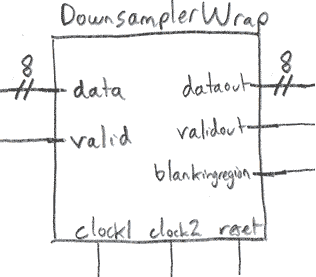 DownsamplerWrap
8 8
data dataout
valid validout
blankingregion
clock1 clock2 reset